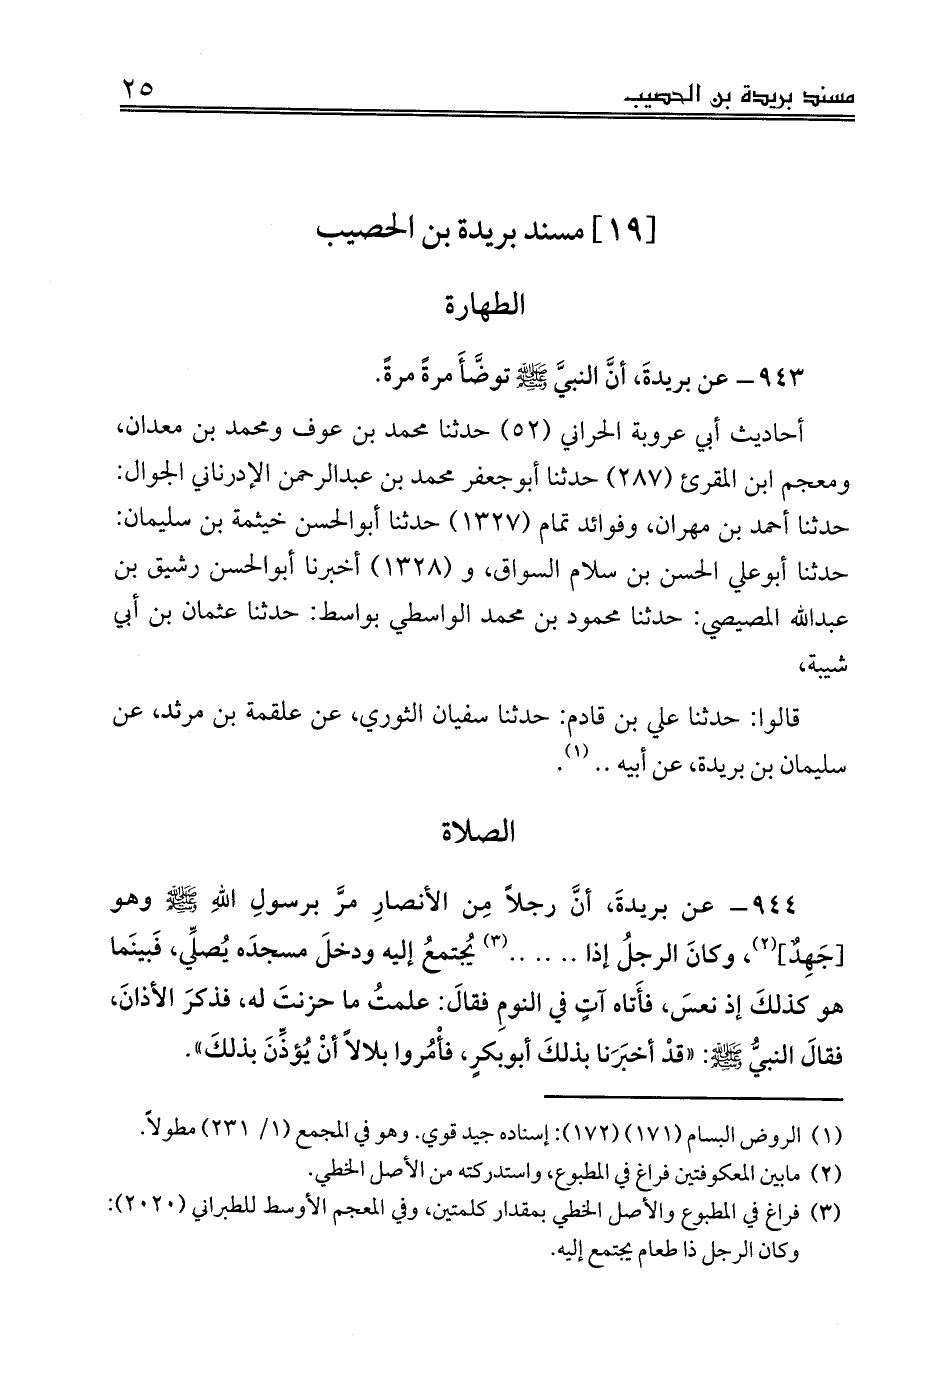 مسند بريدة بن الحصيب ٢٥
[١٩] مسند بريدة بن الحصيب
الطهارة
٩٤٣- عن بريدةَ، أنَّ النبيَّ ﷺ توضَّأَ مرةً مرةً.
أحاديث أبي عروبة الحراني (٥٢) حدثنا محمد بن عوف ومحمد بن معدان،
ومعجم ابن المقرئ (٢٨٧) حدثنا أبوجعفر محمد بن عبدالرحمن الإدرناني الجوال:
حدثنا أحمد بن مهران، وفوائد تمام (١٣٢٧) حدثنا أبوالحسن خيثمة بن سليمان:
حدثنا أبوعلي الحسن بن سلام السواق، و (١٣٢٨) أخبرنا أبوالحسن رشيق بن
عبدالله المصيصي: حدثنا محمود بن محمد الواسطي بواسط: حدثنا عثمان بن أبي
شيبة،
قالوا: حدثنا علي بن قادم: حدثنا سفيان الثوري، عن علقمة بن مرثد، عن
سليمان بن بريدة، عن أبيه .. (١).
الصلاة
٩٤٤- عن بريدةَ، أنَّ رجلاً مِن الأنصارِ مرَّ برسولِ اللهِ ﷺ وهو
[جَهِدٌ](٢)، وكانَ الرجلُ إذا .. .. ..(٣) يُجتمعُ إليه ودخلَ مسجدَه يُصلِّي، فَبينَما
هو كذلكَ إذ نعسَ، فأَتاه آتٍ في النومِ فقالَ: علمتُ ما حزنتَ له، فذكرَ الأذانَ،
فقالَ النبيُّ ﷺ: «قدْ أخبَرَنا بذلكَ أبوبكرٍ، فأْمُروا بلالاً أنْ يُؤذِّنَ بذلكَ».
(١) الروض البسام (١٧١) (١٧٢): إسناده جيد قوي. وهو في المجمع (١/ ٢٣١) مطولاً.
(٢) مابين المعكوفتين فراغ في المطبوع، واستدركته من الأصل الخطي.
(٣) فراغ في المطبوع والأصل الخطي بمقدار كلمتين، وفي المعجم الأوسط للطبراني (٢٠٢٠):
وكان الرجل ذا طعام يجتمع إليه.